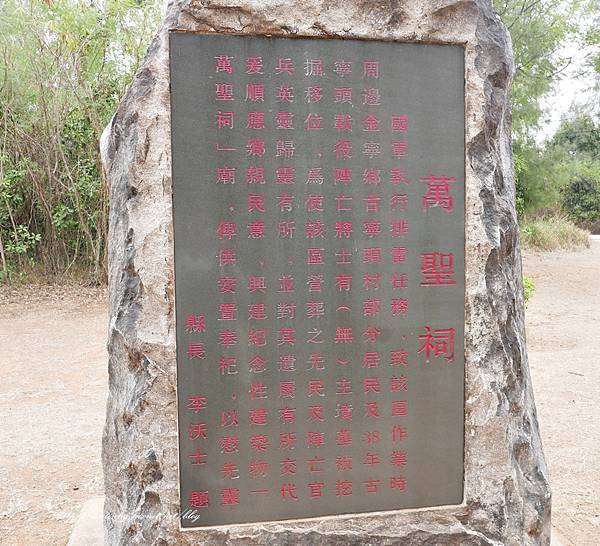 萬聖祠
國軍執行排雷任務、致該區作業時
周邊金寧鄉古寧頭村部分居民及38年古
寧頭戰役陣亡將士有(無)主墳墓被挖
掘移位、為使該區營葬之先民及陣亡官
兵英靈歸靈有所、並對其遺族有所交代
爰順應鄉親民意、興建紀念性建築物一
萬聖祠一廟、俾供安置奉祀、以慰先靈
縣長 李沃士 題